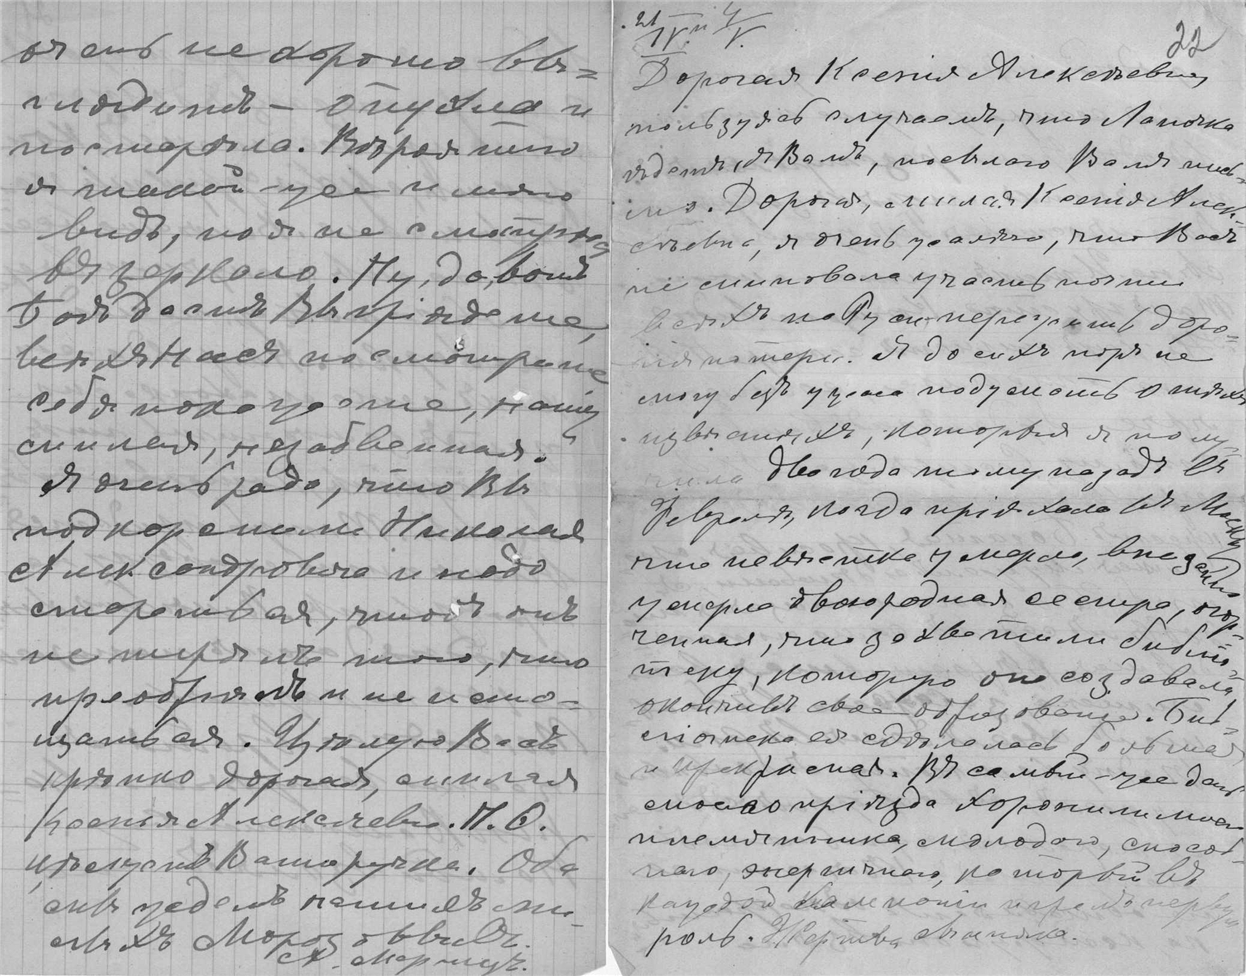 очень не хорошо вы=
глядитъ – опухла и
постарѣла. Вѣроятно
я такой-же имѣю
видъ, но я не смотрюсь
въ зеркало. Ну, да, вотъ
Богъ дастъ Вы пріѣдете,
всѣхъ насъ посмотрите
себя покажете, наша
милая, незабвенная.
Я очень рада, что Вы
подкормили Николая
Александровича и надо
стараться, чтобъ онъ
не терялъ того, что
пріобрѣлъ и не исто=
щался. Цѣлую Васъ
крѣпко дорогая, милая
Ксенія Алексѣевна. П. О.
цѣлуетъ Ваши ручки. Оба
мы ждемъ нашихъ ми-
лыхъ Морозовыхъ.
21/IV и 4/V.
22
Дорогая Ксенія Алексѣевна
пользуясь случаемъ, что Лапочка
ѣдетъ къ Вамъ, посылаю Вамъ пись-
мо. Дорогая, милая Ксенія Алек-
сѣевна, я очень жалѣю, что Васъ
не миновала участь почти
всѣхъ на Руси пережить доро-
гія потери. Я до сихъ поръ не
могу безъ ужаса подумать о тѣхъ
извѣстіяхъ, которыя я полу
чила два года тому назадъ въ
Февралѣ, когда пріѣхала въ Москву
что невѣстка умерла, внезапно
умерла двоюродная сестра, огор-
ченная, что захватили библіо-
теку, которую она создавала
окончивъ свое образованіе. Биб
ліотека ея сдѣлалась большая
и прекрасная. Въ самый-же день
моего пріѣзда хоронили моего
племянника, молодого, способ-
наго, энергичнаго, который въ
каждой кампаніи игралъ первую
роль.